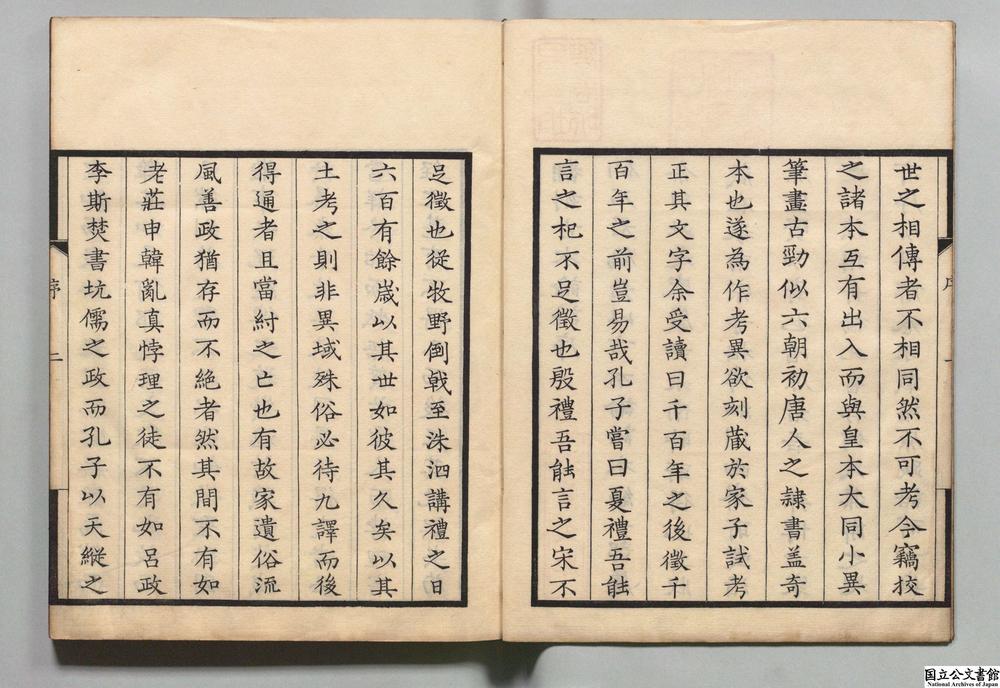 世之相傳者不相同然不可考今竊挍
之諸本互有出入而與皇本大同小異
筆畫古勁似六朝初唐人之隷書盖奇
本也遂為作考異欲刻蕆於家子試考
正其文字余受讀曰千百年之後徵千
百年之前豈易哉孔子嘗曰夏禮吾能
言之杞不足徵也殷禮吾能言之宋不
足徵也從牧野倒戟至洙泗講禮之日
六百有餘歲以其世如彼其久矣以其
土考之則非異域殊俗必待九譯而後
得通者且當紂之亡也有故家遺俗流
風善政猶存而不絶者然其間不有如
老莊申韓亂真悖理之徒不有如呂政
李斯焚書坑儒之政而孔子以天縱之
序
一
序
二
国立公文書館
National Archives of Japan